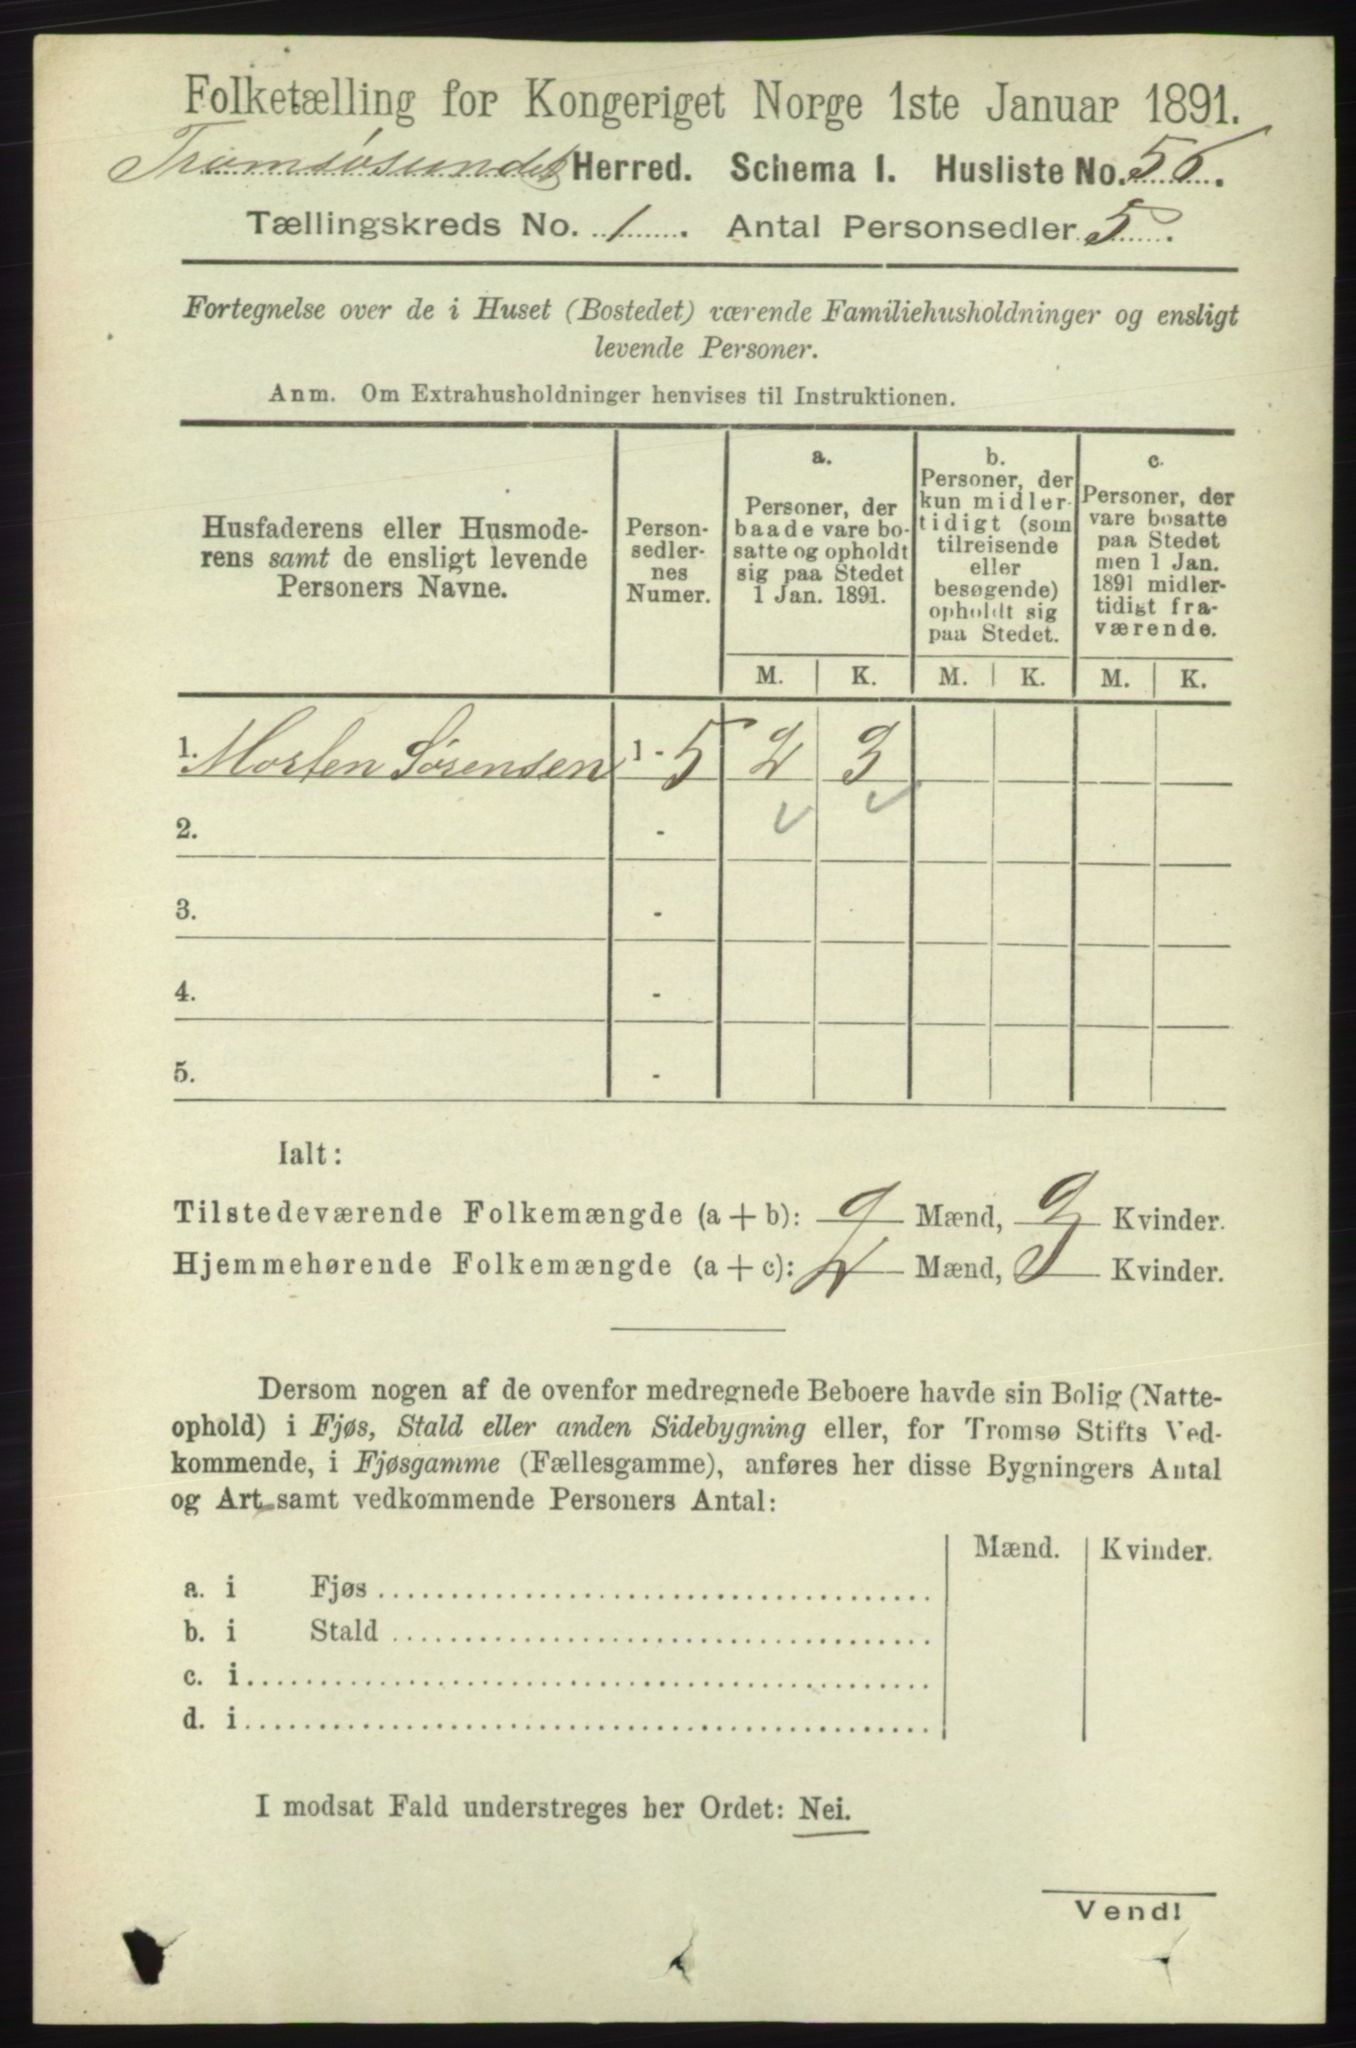 Folketælling for Kongeriget Norge 1ste Januar 1891.
Tromsøsundets Herred. Schema I. Husliste No. 56.
Tællingskreds No. 1. Antal Personsedler 5.
Fortegnelse over de i Huset (Bostedet) værende Familiehusholdninger og ensligt
levende Personer.
Anm. Om Extrahusholdninger henvises til Instruktionen.
Husfaderens eller Husmode-
rens samt de ensligt levende
Personers Navne.
Person-
sedler-
nes
Numer.
a.
Personer, der
baade vare bo-
satte og opholdt
sig paa Stedet
1 Jan. 1891.
b.
Personer, der
kun midler-
tidigt (som
tilreisende
eller
besøgende)
opholdt sig
paa Stedet.
c.
Personer, der
vare bosatte
paa Stedet
men 1 Jan.
1891 midler-
tidigt fra-
værende.
M. K. M. K. M. K.
1. Morten Sørensen 1 - 5 2 3
2. -
3. -
4. -
5. -
Ialt:
Tilstedeværende Folkemængde (a + b): 2 Mænd, 3 Kvinder.
Hjemmehørende Folkemængde (a + c): Mænd, Kvinder.
Dersom nogen af de ovenfor medregnede Beboere havde sin Bolig (Natte-
ophold) i Fjøs, Stald eller anden Sidebygning eller, for Tromsø Stifts Ved-
kommende, i Fjøsgamme (Fællesgamme), anføres her disse Bygningers Antal
og Art samt vedkommende Personers Antal:
Mænd. Kvinder.
a. i Fjøs
b. i Stald
c. i
d. i
I modsat Fald understreges her Ordet: Nei.
Vend!